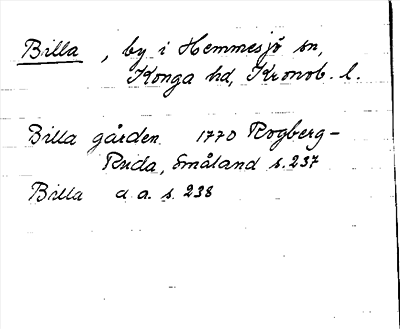 Billa, by i Hemmesjö sn,
Konga hd, Kronob. l.
Billa gården 1770 Rogberg-
Ruda, Småland s. 237
Billa a. a. s. 238